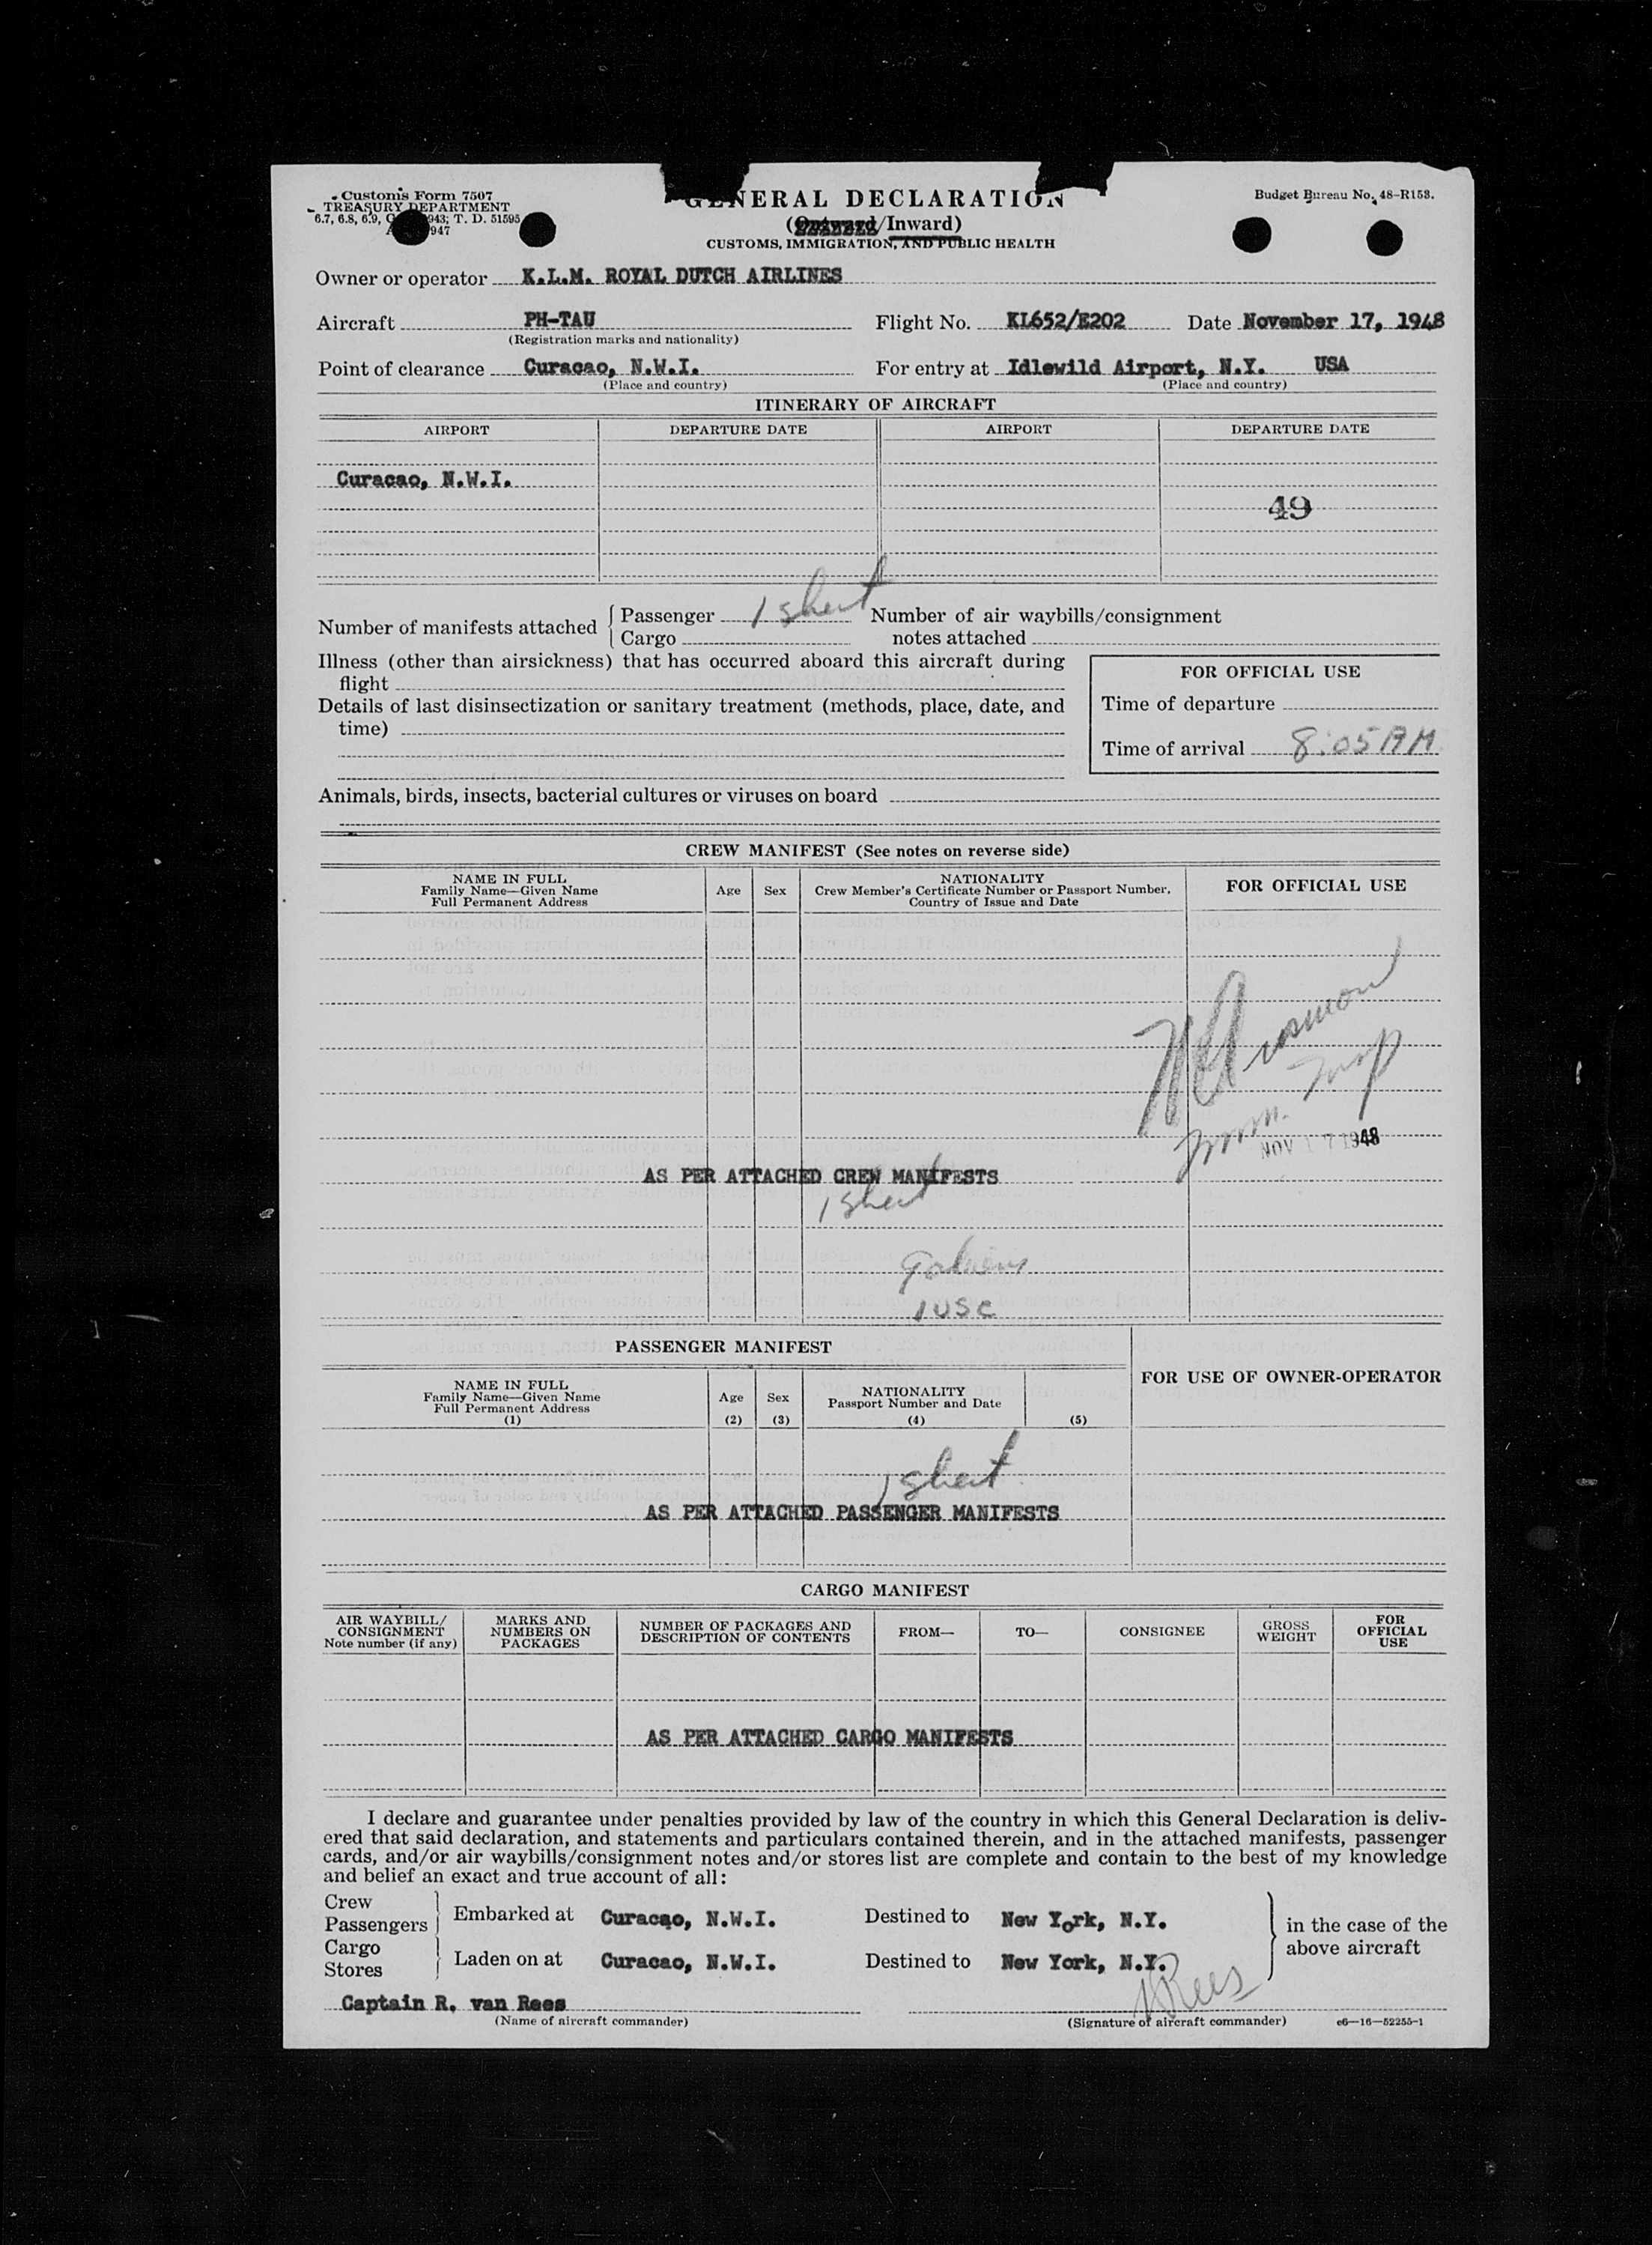 Customs Form 7507
TREASURY DEPARTMENT
6.7, 6.8, 6.9, 943; T. D. 51595
947
GENERAL DECLARATION
(Outward/Inward)
CUSTOMS, IMMIGRATION, AND PUBLIC HEALTH
Budget Bureau No. 48-R153.
Owner or operator K.L.M. ROYAL DUTCH AIRLINES
Aircraft PH-TAU Flight No. KL652/E202 Date November 17, 1948
(Registration marks and nationality)
Point of clearance Curacao, N.W.I. For entry at Idlewild Airport, N.Y. USA
(Place and country) (Place and country)
ITINERARY OF AIRCRAFT
AIRPORT DEPARTURE DATE AIRPORT DEPARTURE DATE
Curacao, N.W.I.
49
Number of manifests attached { Passenger 1 sheet Number of air waybills/consignment
Cargo notes attached
Illness (other than airsickness) that has occurred aboard this aircraft during
flight
Details of last disinsectization or sanitary treatment (methods, place, date, and
time)
FOR OFFICIAL USE
Time of departure
Time of arrival 8:05 AM
Animals, birds, insects, bacterial cultures or viruses on board
CREW MANIFEST (See notes on reverse side)
NAME IN FULL
Family Name—Given Name
Full Permanent Address
Age
Sex
NATIONALITY
Crew Member's Certificate Number or Passport Number,
Country of Issue and Date
FOR OFFICIAL USE
Imm. Insp
NOV 17 1948
AS PER ATTACHED CREW MANIFESTS
1 sheet
1 USC
PASSENGER MANIFEST
NAME IN FULL
Family Name—Given Name
Full Permanent Address
(1)
Age
(2)
Sex
(3)
NATIONALITY
Passport Number and Date
(4)
(5)
FOR USE OF OWNER-OPERATOR
1 sheet
AS PER ATTACHED PASSENGER MANIFESTS
CARGO MANIFEST
AIR WAYBILL/
CONSIGNMENT
Note number (if any)
MARKS AND
NUMBERS ON
PACKAGES
NUMBER OF PACKAGES AND
DESCRIPTION OF CONTENTS
FROM—
TO—
CONSIGNEE
GROSS
WEIGHT
FOR
OFFICIAL
USE
AS PER ATTACHED CARGO MANIFESTS
I declare and guarantee under penalties provided by law of the country in which this General Declaration is deliv-
ered that said declaration, and statements and particulars contained therein, and in the attached manifests, passenger
cards, and/or air waybills/consignment notes and/or stores list are complete and contain to the best of my knowledge
and belief an exact and true account of all:
Crew
Passengers } Embarked at Curacao, N.W.I. Destined to New York, N.Y.
Cargo
Stores } Laden on at Curacao, N.W.I. Destined to New York, N.Y.
} in the case of the
above aircraft
Captain R. van Rees
Rees
(Name of aircraft commander) (Signature of aircraft commander) e6—16—52255-1